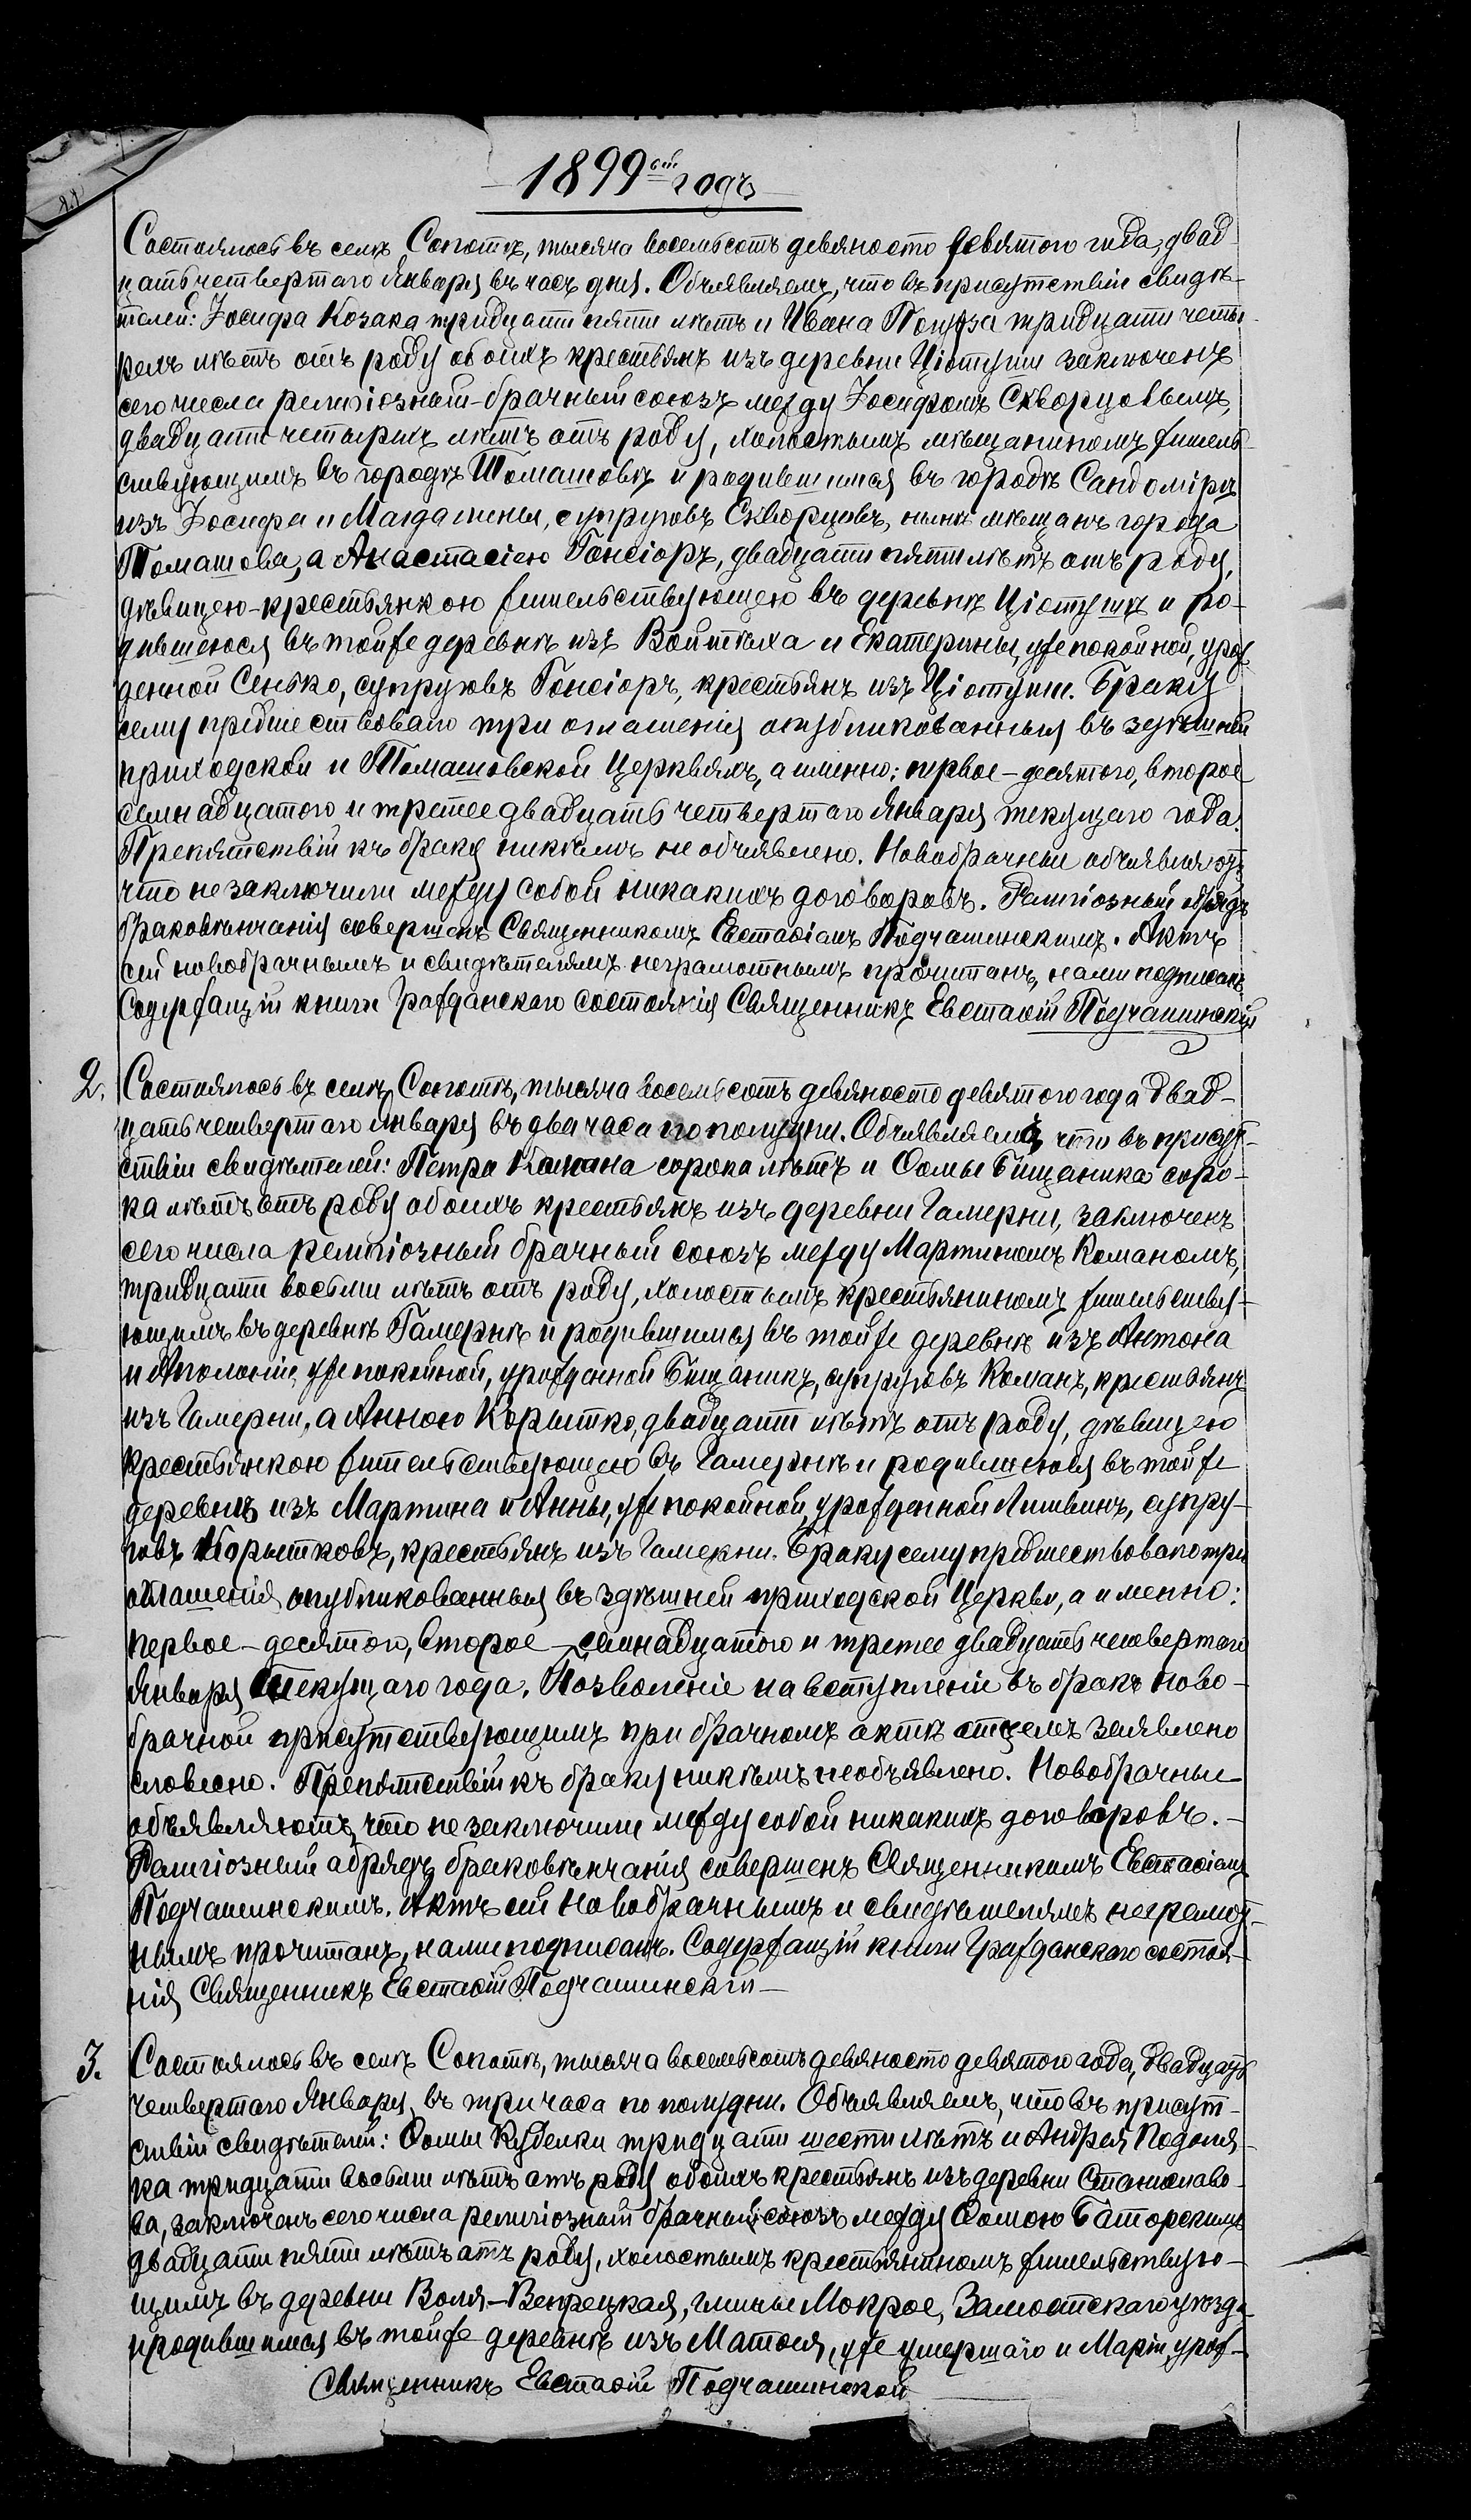 1899ый годъ
Состоялось въ селѣ Сопотѣ, тысяча восемьсотъ девяносто девятого года, двад-
цать четвертаго Января въ часъ дня. Объявляемъ, что въ присутствіи свидѣ-
телей: Іосифа Козака тридцати пяти лѣтъ и Ивана тридцати четы-
рехъ лѣтъ отъ роду обоихъ крестьянъ изъ деревни Ціотуши заключенъ
сего числа религіозный-брачный союзъ между Іосифомъ Скворцовымъ,
двадцати четырехъ лѣтъ отъ роду, холостымъ мѣщаниномъ жительс-
ствующимъ въ городѣ Томашовѣ и родившимся въ городѣ Сандомірѣ
изъ Іосифа и Магдалены, супруговъ Скворцовъ, нынѣ мѣщанъ города
Томашова, а Анастасіею Гонсіоръ, двадцати пяти лѣтъ отъ роду,
дѣвицею-крестьянкою жительствующею въ деревнѣ Ціотушѣ и ро-
дившеюся въ тойже деревнѣ изъ Войтѣха и Екатерины, уже покойной, урож-
денной Сенько, супруговъ Гонсіоръ, крестьянъ изъ Ціотуши. Браку
сему предшествовало три оглашенія опубликованныя въ здѣшней
приходской и Томашовской Церквяхъ, а именно: первое - десятого, второе
семнадцатого и третее двадцать четвертаго Января текущаго года.
Препятствій къ браку никѣмъ не объявлено. Новобрачные объявляютъ
что не заключили между собой никакихъ договоровъ. Религіозный обрядъ
браковѣнчанія совершенъ Священникомъ Евстафіемъ Подчашинскимъ. Актъ
сей новобрачнымъ и свидѣтелямъ неграмотнымъ прочитанъ, нами подписанъ
Содержащій книги Гражданского состоянія Священникъ Евстафій Подчашинскій
2. Состоялось въ селѣ Сопотѣ, тысяча восемьсотъ девяносто девятого года двад-
цать четвертаго Января въ два часа по полудни. Объявляемъ, что въ присут-
ствіи свидѣтелей: Петра Комана сорока лѣтъ и Ѳомы Бищаника соро-
ка лѣтъ отъ роду обоихъ крестьянъ изъ деревни Гамерни, заключенъ
сего числа религіозный брачный союзъ между Мартиномъ Команомъ,
тридцати восьми лѣтъ отъ роду, холостымъ крестьяниномъ жительству-
ющимъ въ деревнѣ Гамернѣ и родившимся въ тойже деревнѣ изъ Антона
и Аполоніи, уже покойной, урожденной Бищаникъ, супруговъ Команъ, крестьянъ
изъ Гамерни, а Анною Корытко, двадцати лѣтъ отъ роду, дѣвицею
крестьянкою жительствующею въ Гамернѣ и родившеюся въ тойже
деревнѣ изъ Мартина и Анны, уже покойной, урожденной Литвинъ, супру-
говъ Корытковъ, крестьянъ изъ Гамерни. Браку сему предшествовало три
оглашенія опубликованныя въ здѣшней приходской Церкви, а именно:
первое - десятого, второе - семнадцатого и третее двадцать четвертаго
Января текущаго года. Позволеніе на вступленіе въ бракъ ново-
брачной присутствующимъ при брачномъ актѣ отцемъ заявлено
словесно. Препятствій къ браку никѣмъ необъявлено. Новобрачные
объявляютъ, что не заключили между собой никакихъ договоровъ. -
Религіозный обрядъ браковѣнчанія совершенъ Священникомъ Евстафіемъ
Подчашинскимъ. Актъ сей новобрачнымъ и свидѣтелямъ неграмот-
нымъ прочитанъ, нами подписанъ. Содержащій книги Гражданского состоя-
нія Священникъ Евстафій Подчашинскій -
3. Состоялось въ селѣ Сопотѣ, тысяча восемьсотъ девяносто девятого года, двадцать
четвертаго Января, въ три часа по полудни. Объявляемъ, что въ присут-
ствіи свидѣтелей: Ѳомы Куделки тридцати шести лѣтъ и Андрея Подоля-
ка тридцати восьми лѣтъ отъ роду обоихъ крестьянъ изъ деревни Станиславо-
ва, заключенъ сего числа религіозный брачный союзъ между Ѳомою Баторскимъ
двадцати пяти лѣтъ отъ роду, холостымъ крестьяниномъ жительствую-
щимъ въ деревни Воля-Вепрецкая, гмины Мокрое, Замостскаго уѣзда
и родившимся въ тойже деревнѣ изъ Матѳея, уже умершаго и Маріи, урож-
Священникъ Евстафій Подчашинскій